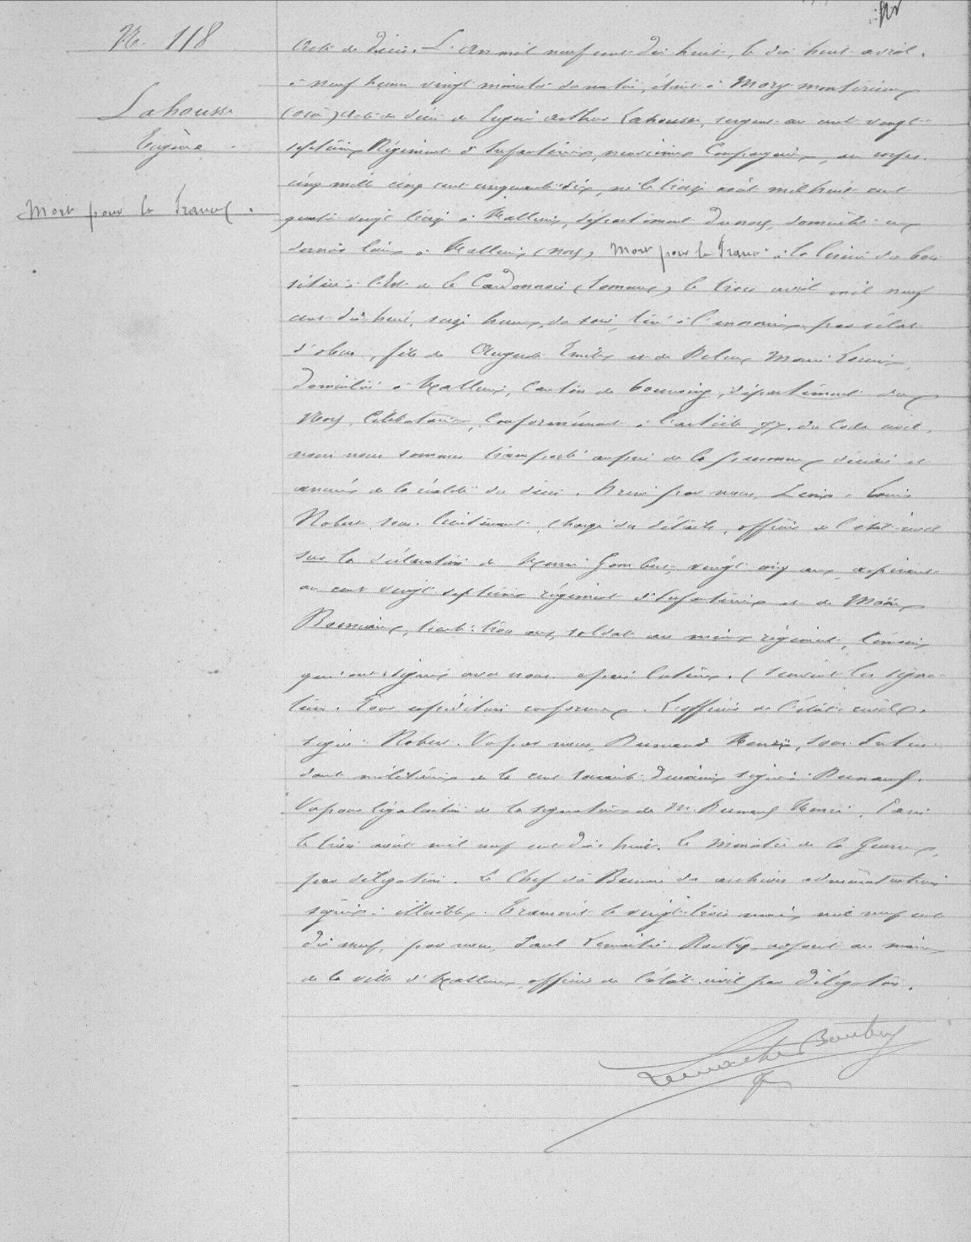 N. 118
Lahousse
Eugène
Mort pour la France.
Acte de décès. L'An mil neuf cent dix huit, le dix huit avril,
à neuf heures vingt minutes du matin, étant à Mory montcrux
(Oise) Acte de décès de Eugène Arthur Lahousse, sergent au cent vingt
septième Régiment d'Infanterie, neuvième Compagnie, au corps
cinq mille cinq cent cinquante dix, né le treize août mil huit cent
quatre vingt treize à Halluin, département du nord, domicilié en
dernier lieu à Halluin (nord), Mort pour la France à la lisière du bois
situé à l'Est de la Cardonnois (Somme) le trois avril mil neuf
cent dix huit, seize heures, du soir, tué à l'ennemi par éclat
d'obus, fils de Auguste Emile et de Marie Louise,
domicilié à Halluin, Canton de Tourcoing, département du
Nord, Célibataire, Conformément à l'article 77 du Code civil,
nous nous sommes transporté auprès de la personne décédée et
assurés de la réalité du décès. Dressé par nous, Louis
Robert, sous-lieutenant, chargé des détails, officier de l'état-civil
sur la déclaration de Henri Gombert, vingt cinq ans, aspirant
au cent vingt septième régiment d'Infanterie et de
trente trois ans, soldat au même régiment, témoins
qui ont signé avec nous après lecture. (Suivent les signa-
tures. Pour expédition conforme. L'officier de l'état-civil.
signé: Robert. Vu par nous, Renaud Henri, Sous Inten-
dant militaire de la cent soixante deuxième signé: Renaud.
Vu pour légalisation de la signature de M. Renaud Henri. Paris
le trois août mil neuf cent dix huit. Le Ministre de la Guerre,
par délégation. Le Chef du Bureau des archives administratives
signé: illisible. Transcrit le vingt trois mai mil neuf cent
dix neuf, par nous, Paul Lemaitre Bouty, adjoint au maire
de la ville d'Halluin, officier de l'état civil par délégation.
Lemaitre Bouty